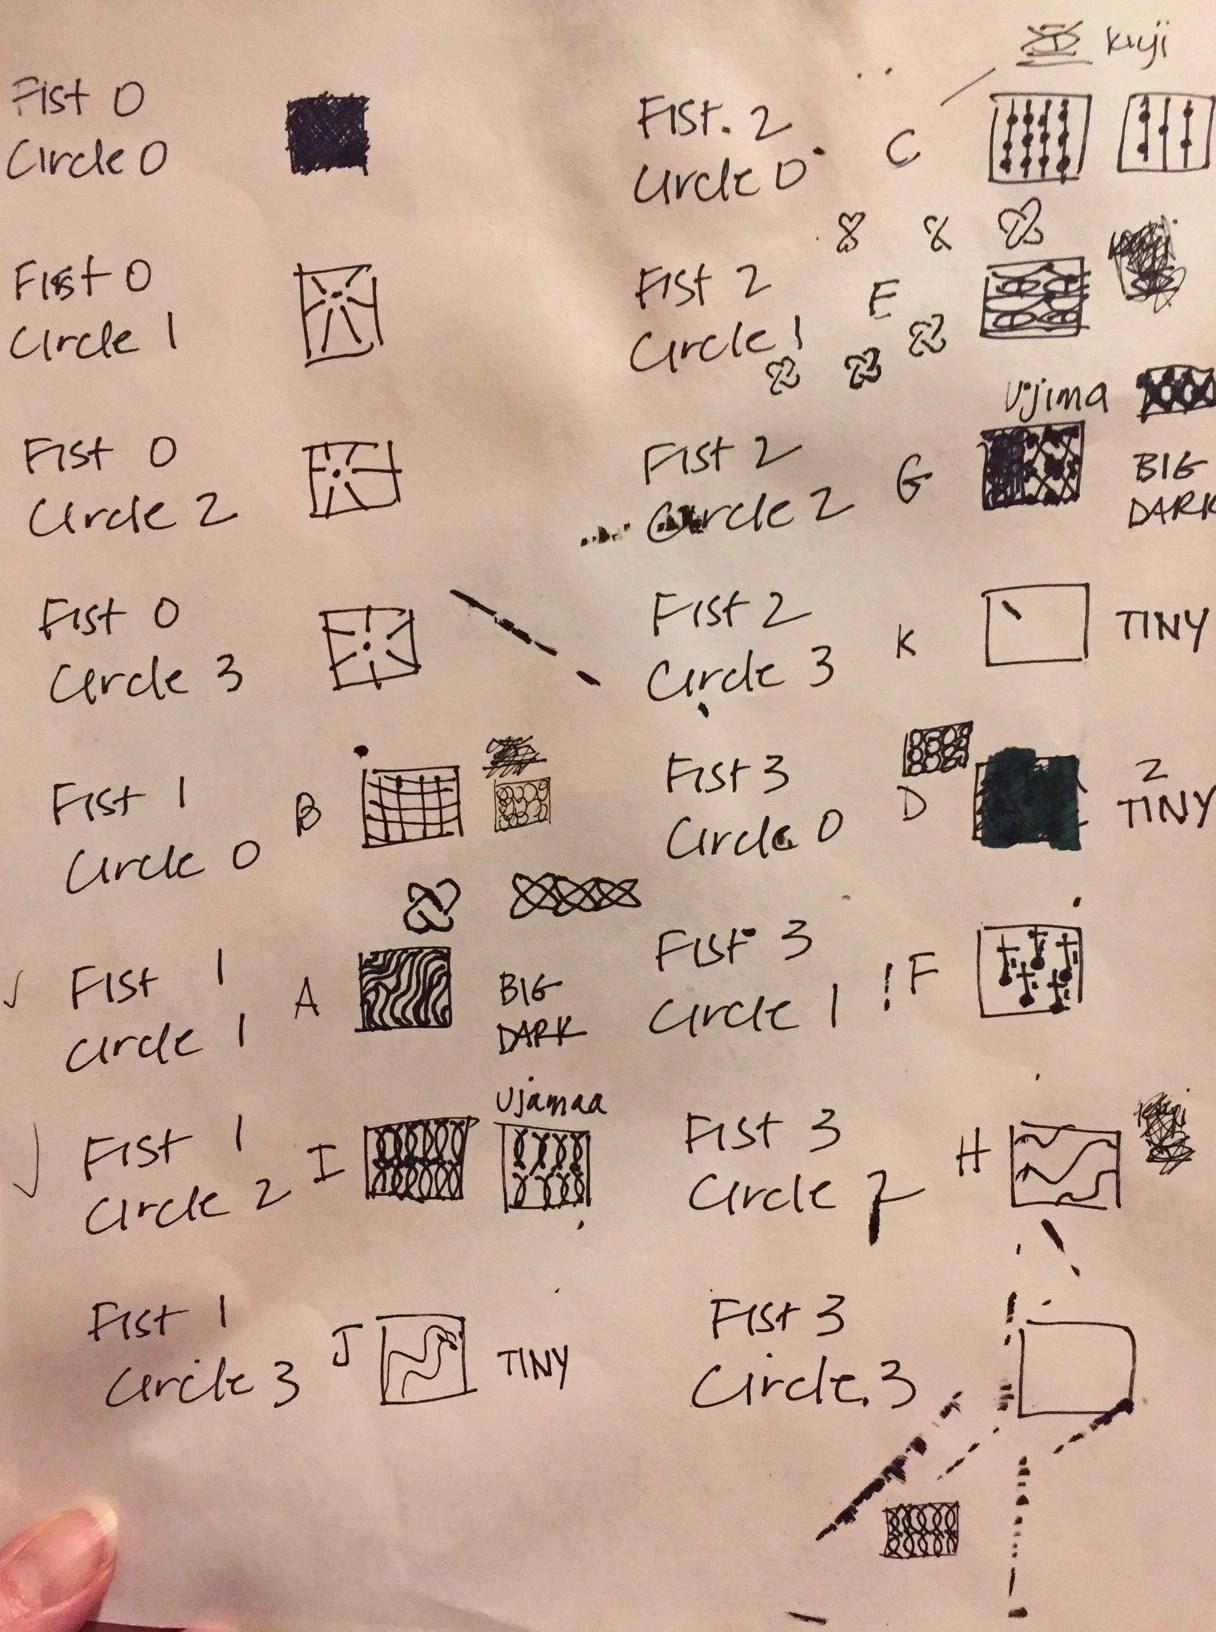 Fist 0
Circle 0
Fist 0
Circle 1
Fist 0
Circle 2
Fist 0
Circle 3
Fist 1
B
Circle 0
Fist 1
A
BIG
Circle 1
DARK
Ujamaa
Fist 1
I
Circle 2
Fist 1
J
TINY
Circle 3
Kuji
Fist. 2
C
Circle 0
Fist 2
E
Circle 1
Ujima
Fist 2
G
BIG
Circle 2
DARK
Fist 2
K
TINY
Circle 3
Fist 3
D
2
TINY
Circle 0
Fist 3
! F
Circle 1
Fist 3
H
Circle 2
Fist 3
Circle 3